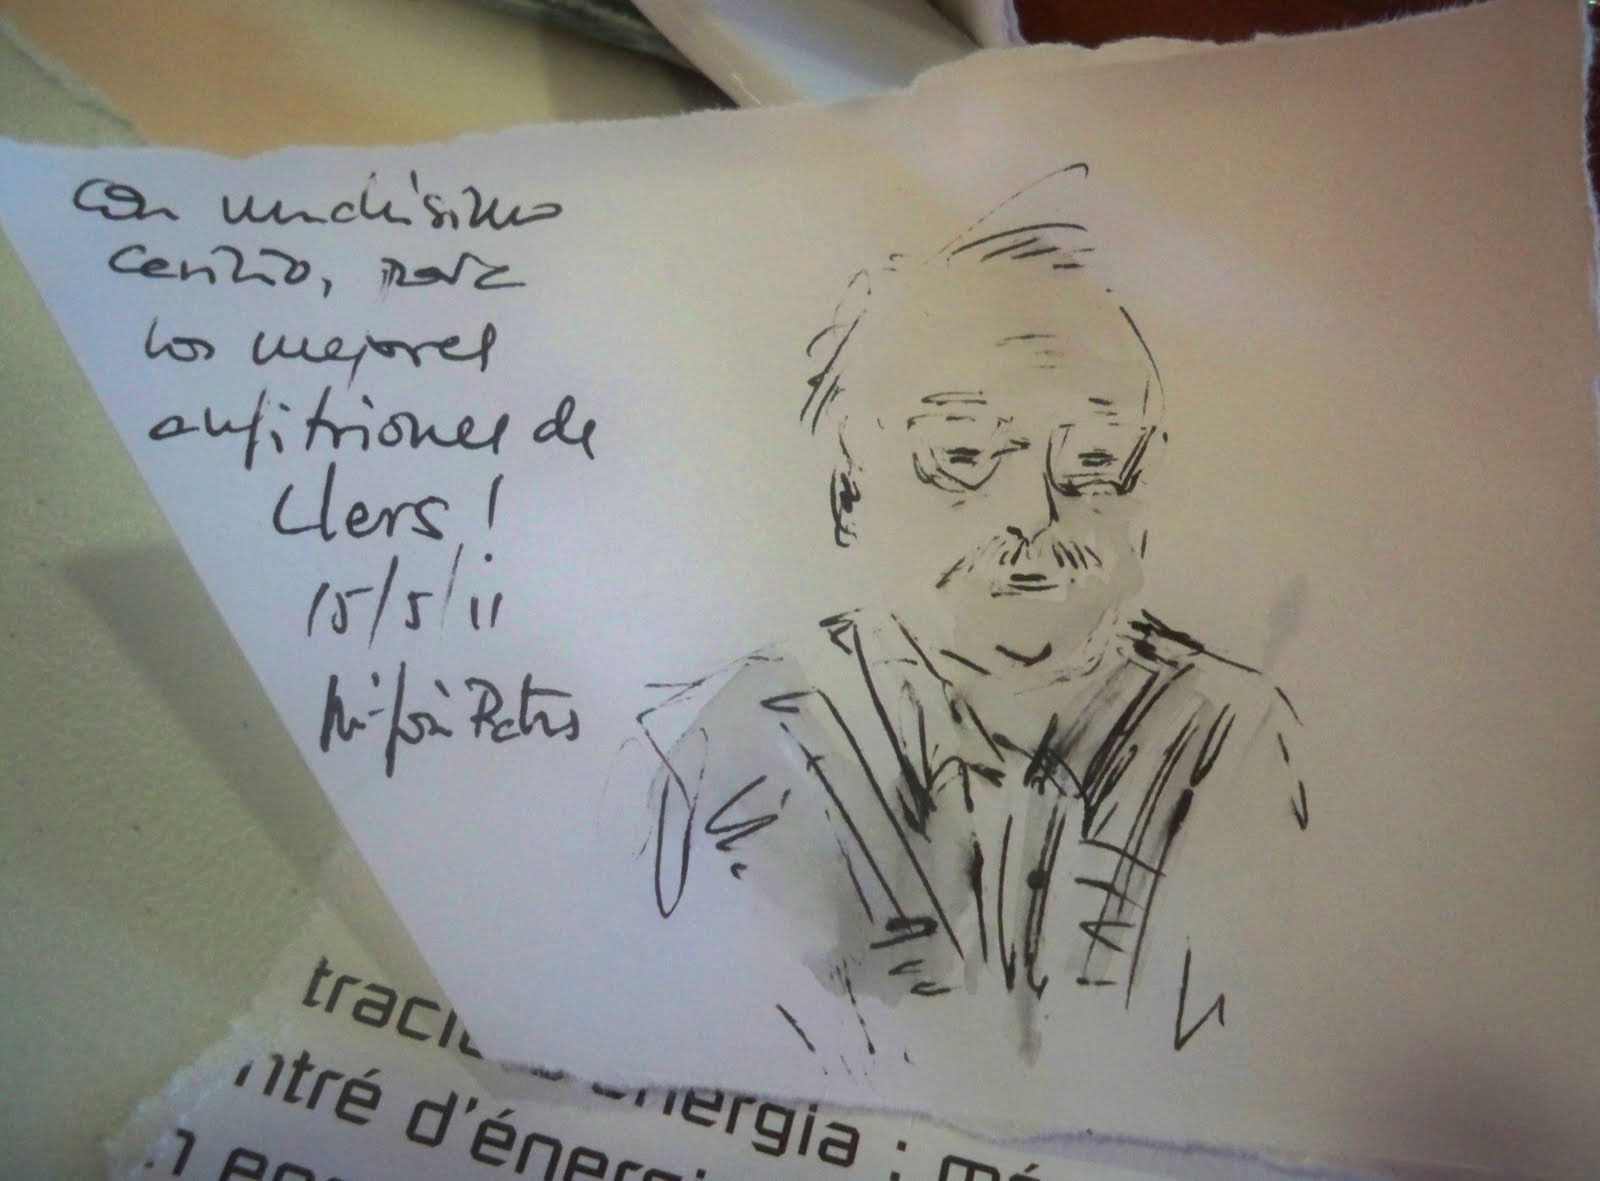 Con muchísimo
cariño, para
los mejores
anfitriones de
Llers!
15/5/11
traci
energia : mé
ntré d'énergi
n ene